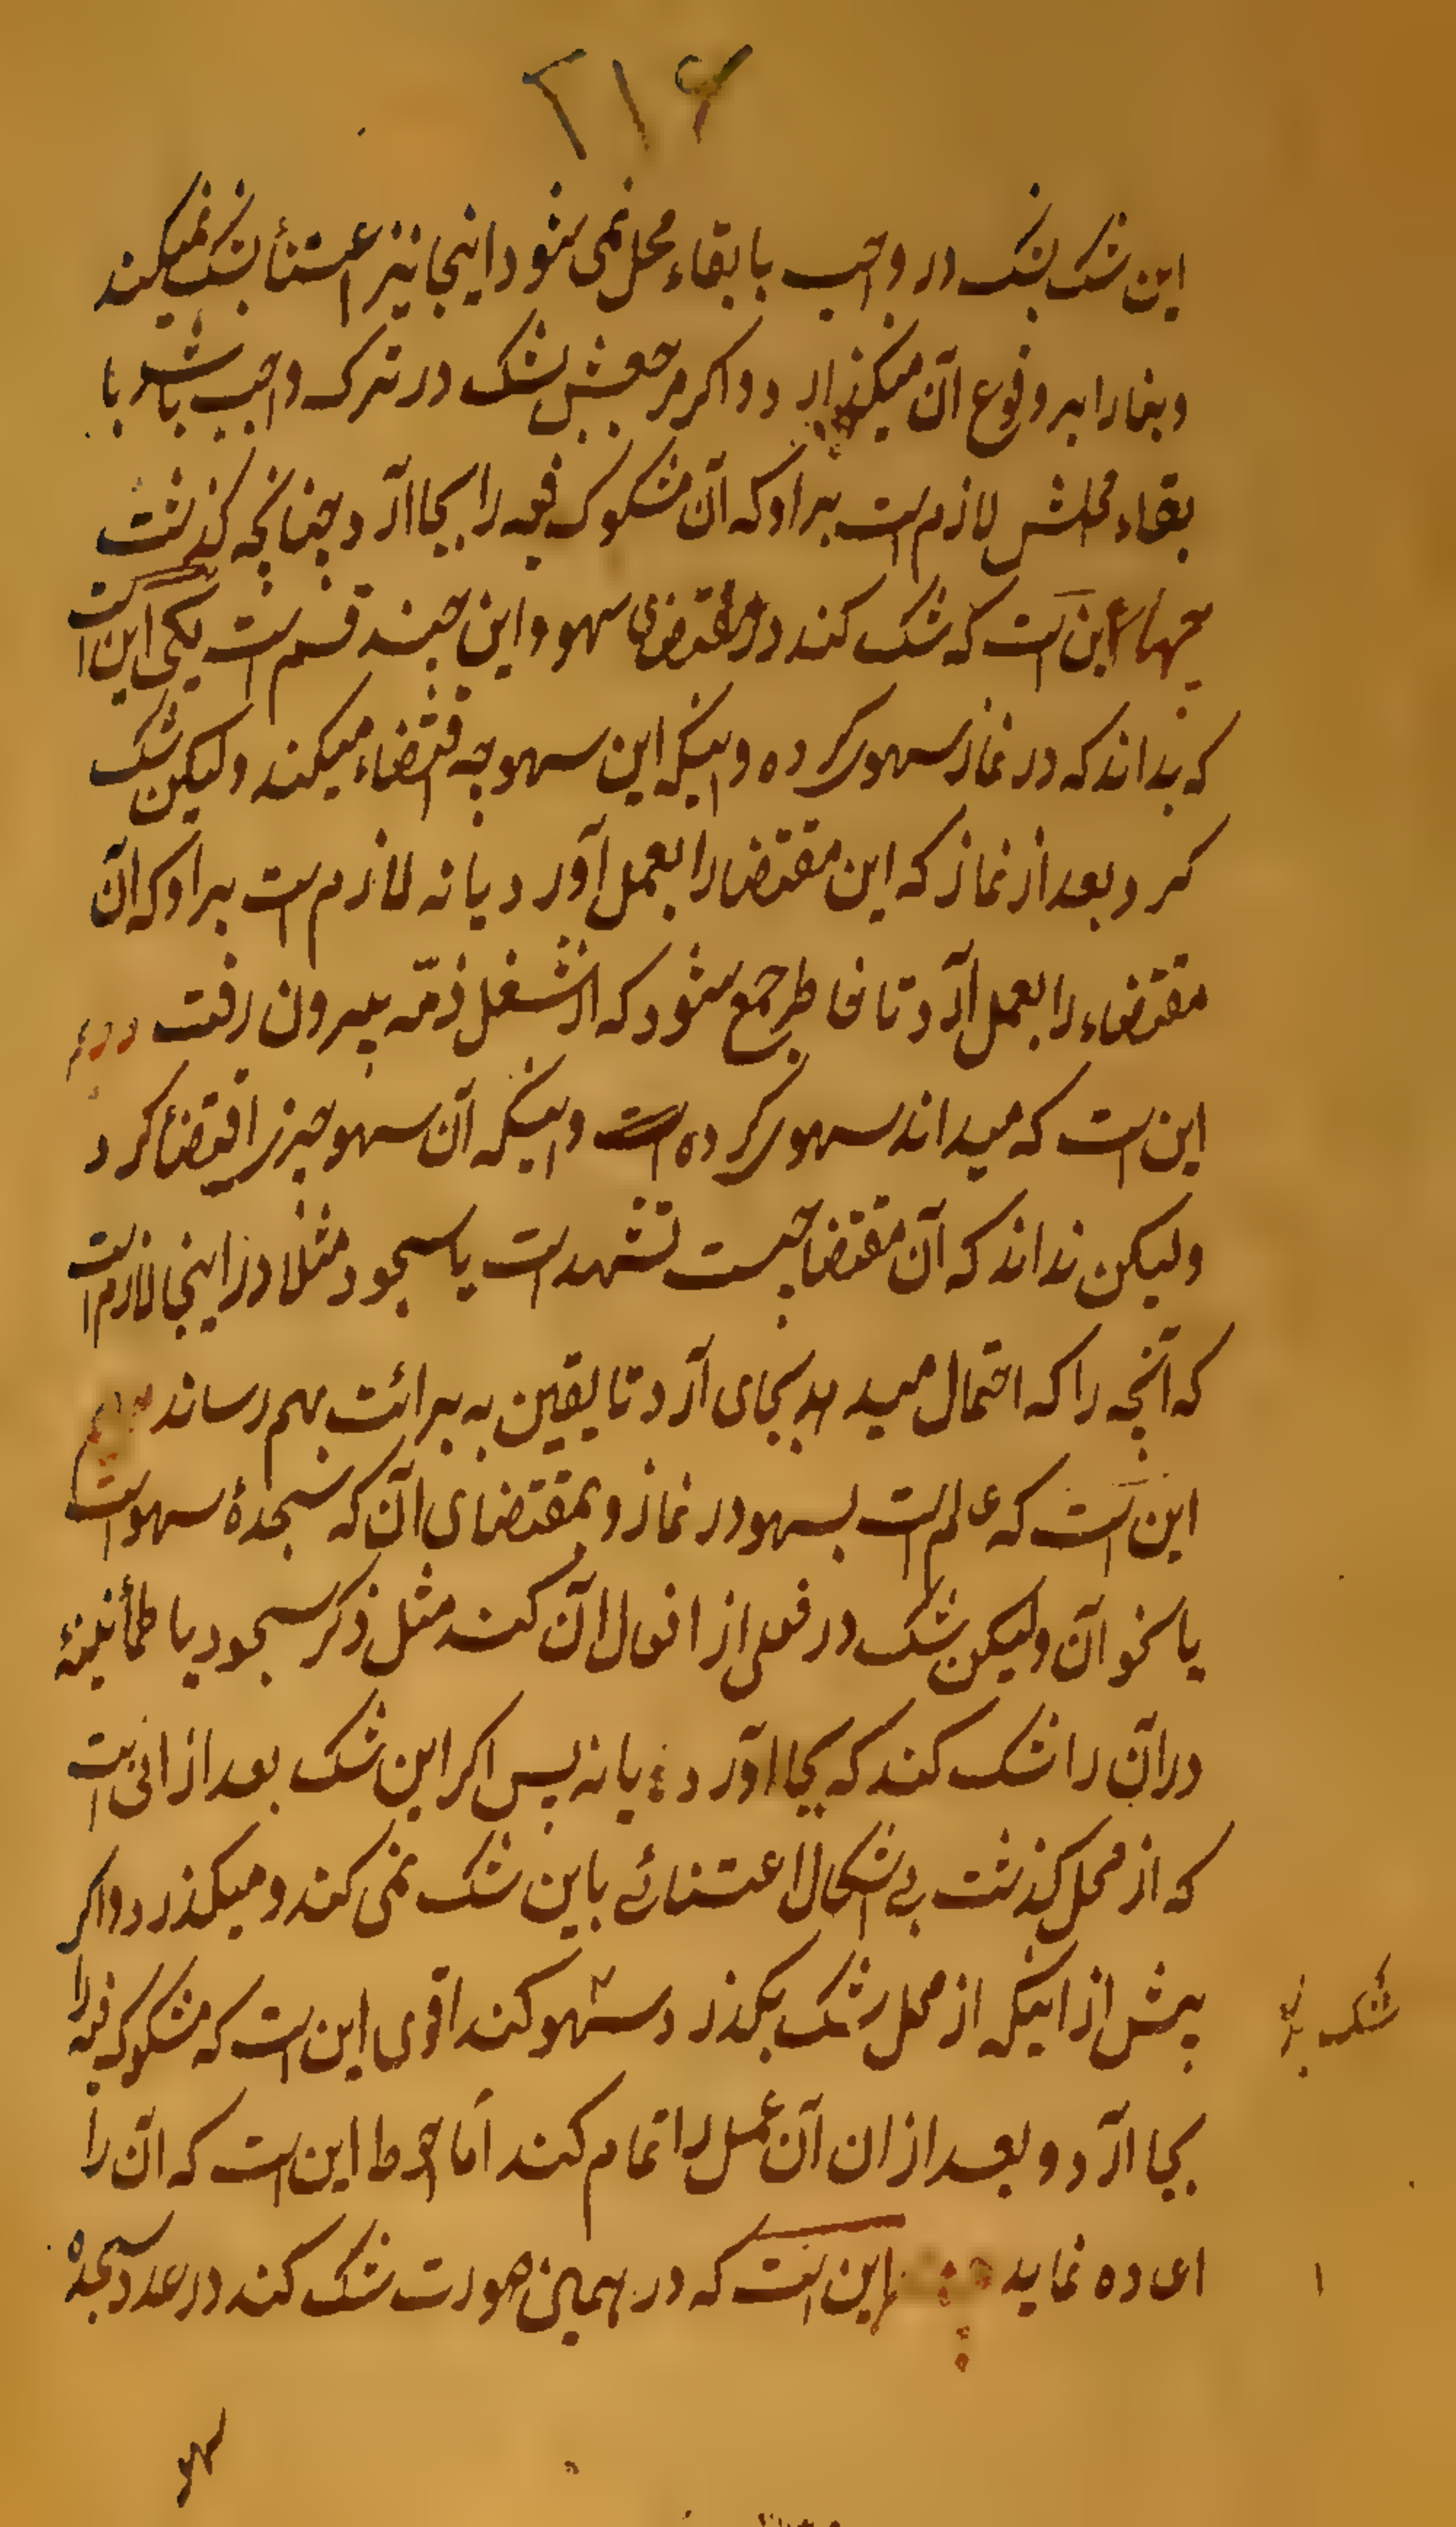 ۲۱۶
این شک بشک در واجب با بقاء محل نمی شود اینجا نیز اعتنأ بشک نمیکند
وبنا را بر وقوع آن میکذارد و اکر مرجعش بشک در ترک واجب باشد با
بقاء محلش لازم است بر او که آن مشکوک فیه را بجا آرد چنانچه کذشت
چهارم این است که شک کند در مقتضی سهو و این چند قسم است یکی این است
که بداند که در نماز سهوی کرده و اینکه این سهو چه اقتضاء میکند ولیکن شک
کرد بعد از نماز که این مقتضا را بعمل آورد یا نه لازم است بر او که آن
مقتضاء را بعمل آرد تا خاطر جمع شود که از شغل ذمّه بیرون رفت دویم
این است که میداند سهوی کرده است و اینکه آن سهو چیزی اقتضأ کرد
ولیکن نداند که آن مقتضا چیست تشهد است یا سجود مثلا در اینجا لازم است
که آنچه را که احتمال میدهد بجای آرد تا یقین به برائت بهم رساند سیم
این است که عالم است بسهو در نماز و بمقتضای آن که سجدهٔ سهو است
یا نحو آن ولیکن شک در فعلی از افعال آن کند مثل ذکر سجود یا طمأنینهٔ
در آن را شک کند که بجا آورد یا نه پس اکر این شک بعد از انی است
که از محل کذشت بی اشکال اعتنائے باین شک نمی کند و میکذرد و اکر
پیش از اینکه از محل شک بکذرد سهو کند اقوی این است که مشکوک فیه را
بجا آرد و بعد از ان آن عمل را تمام کند اما احوط این است که آن را
اعاده نماید این است که در همین صورت شک کند در عدد سجدهٔ
شک
۱
سهو